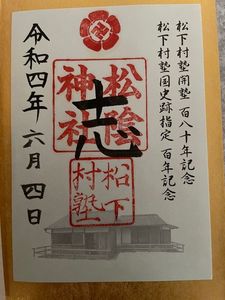 松下村塾開塾百八十年記念
松下村塾国史跡指定百年記念
松陰神社
志
松下村塾
令和四年六月四日